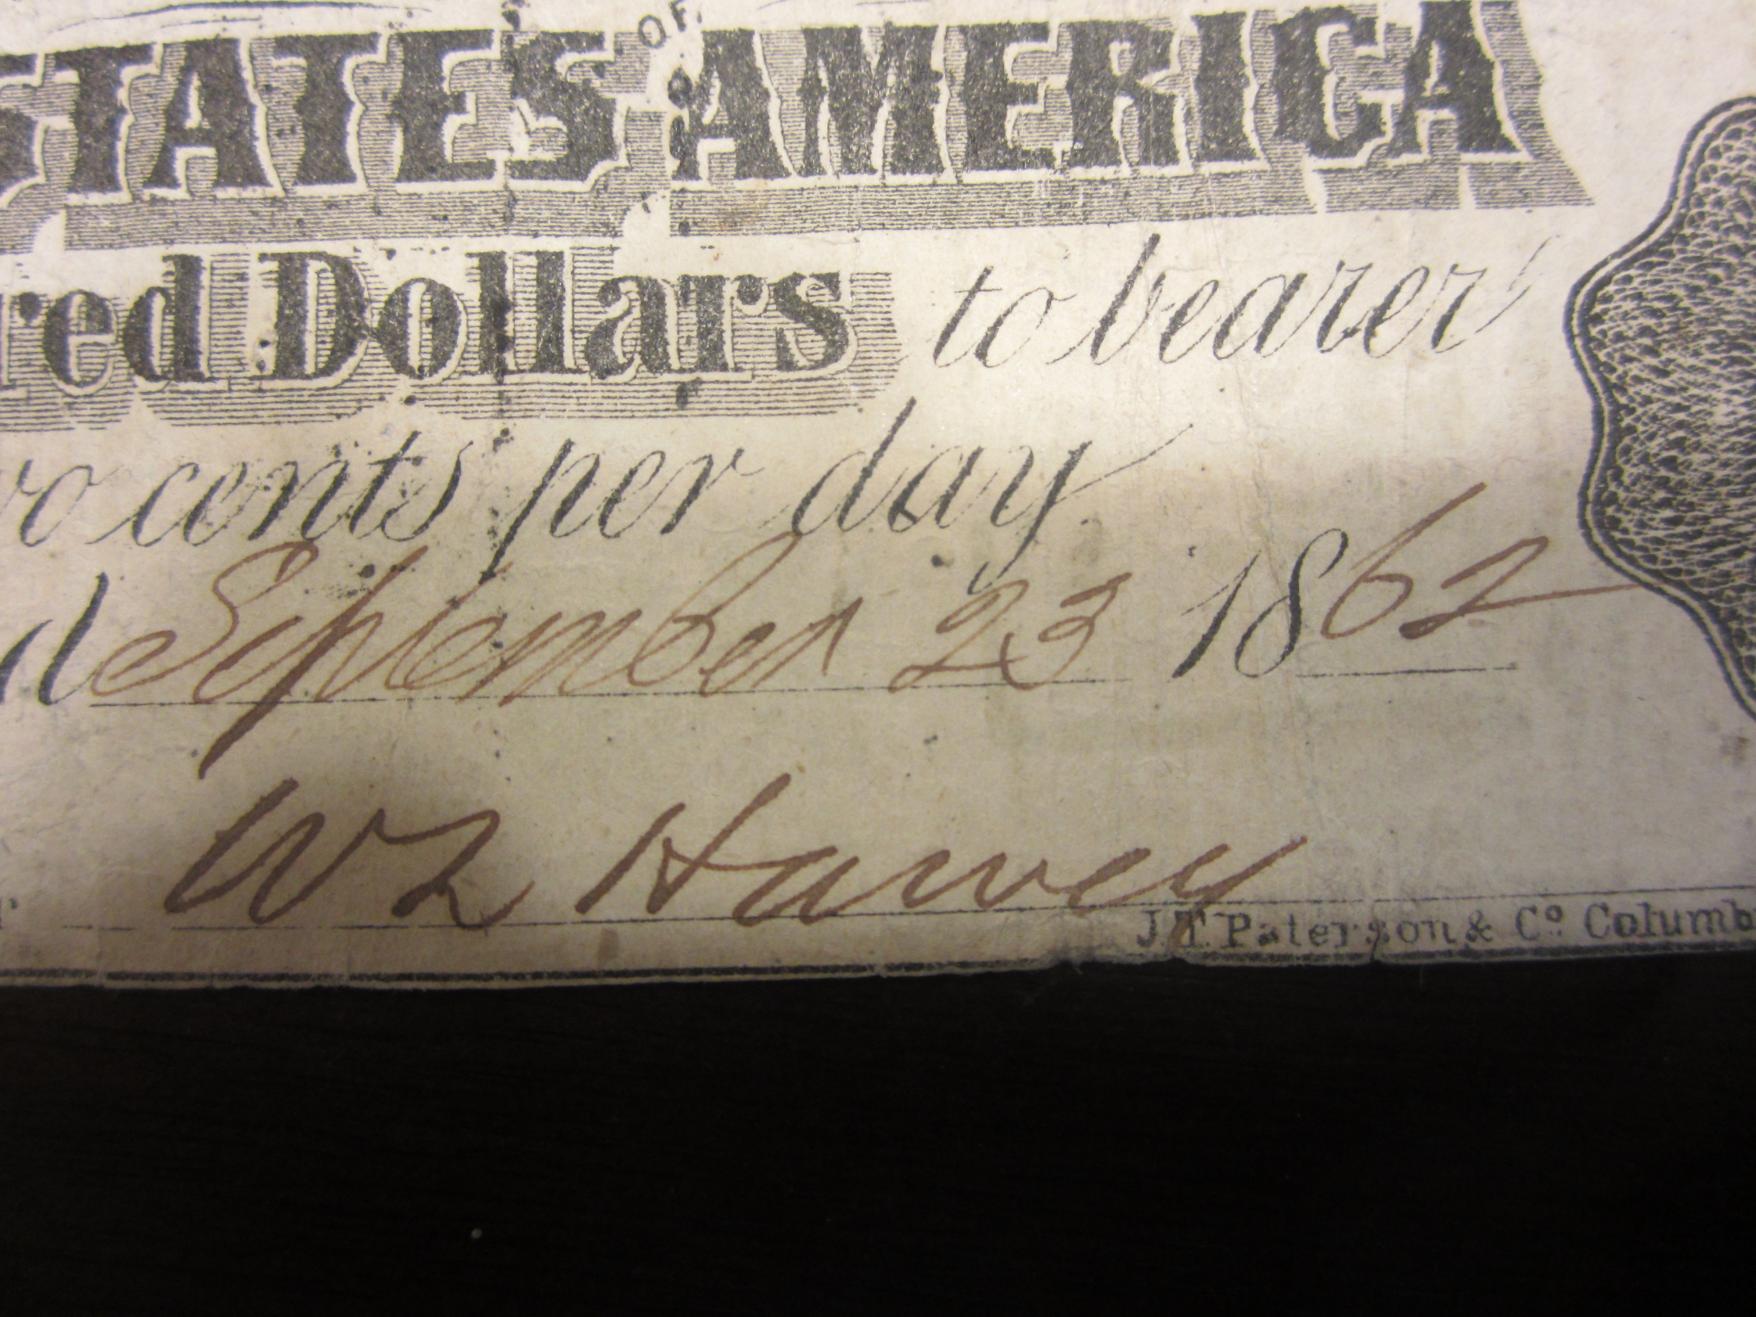 OF
STATES AMERICA
red Dollars to bearer
wo cents per day
d September 23 1862
W L Harvey
J.T. Paterson & Co. Columb